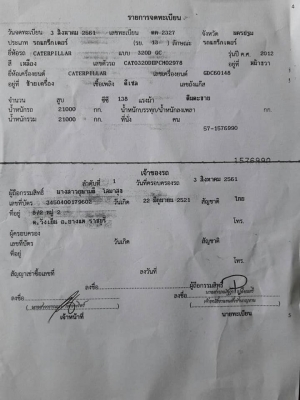 รายการจดทะเบียน
วันจดทะเบียน 3 สิงหาคม 2561 เลขทะเบียน ตค-2327 จังหวัด นครปฐม
ประเภท รถแทร็กเตอร์ (รย. 13 ) ลักษณะ รถแทร็กเตอร์
ยี่ห้อรถ CATERPILLAR แบบ 320D GC รุ่นปี ค.ศ. 2012
สี เหลือง เลขตัวรถ อยู่ที่
ยี่ห้อเครื่องยนต์ CATERPILLAR เลขเครื่องยนต์ GDC60148
อยู่ที่ เชื้อเพลิง ดีเซล เลขถังแก๊ส
จำนวน สูบ ซีซี 138 แรงม้า
น้ำหนักรถ 21000 กก. น้ำหนักบรรทุก/น้ำหนักลงเพลา กก.
น้ำหนักรวม 21000 กก. ที่นั่ง คน
57-1576990
1576990
เจ้าของรถ
ลำดับที่ 1 วันที่ครอบครองรถ 3 สิงหาคม 2561
ผู้ถือกรรมสิทธิ์
เลขที่บัตร วันเกิด 22 มิถุนายน 2521 สัญชาติ ไทย
ที่อยู่ หมู่ 2
โทร.
ผู้ครอบครอง
เลขที่บัตร วันเกิด สัญชาติ
ที่อยู่
โทร.
สัญญาเช่าซื้อเลขที่ ลงวันที่
ลงชื่อ ผู้ถือกรรมสิทธิ์
ลงชื่อ
เจ้าหน้าที่ นายทะเบียน